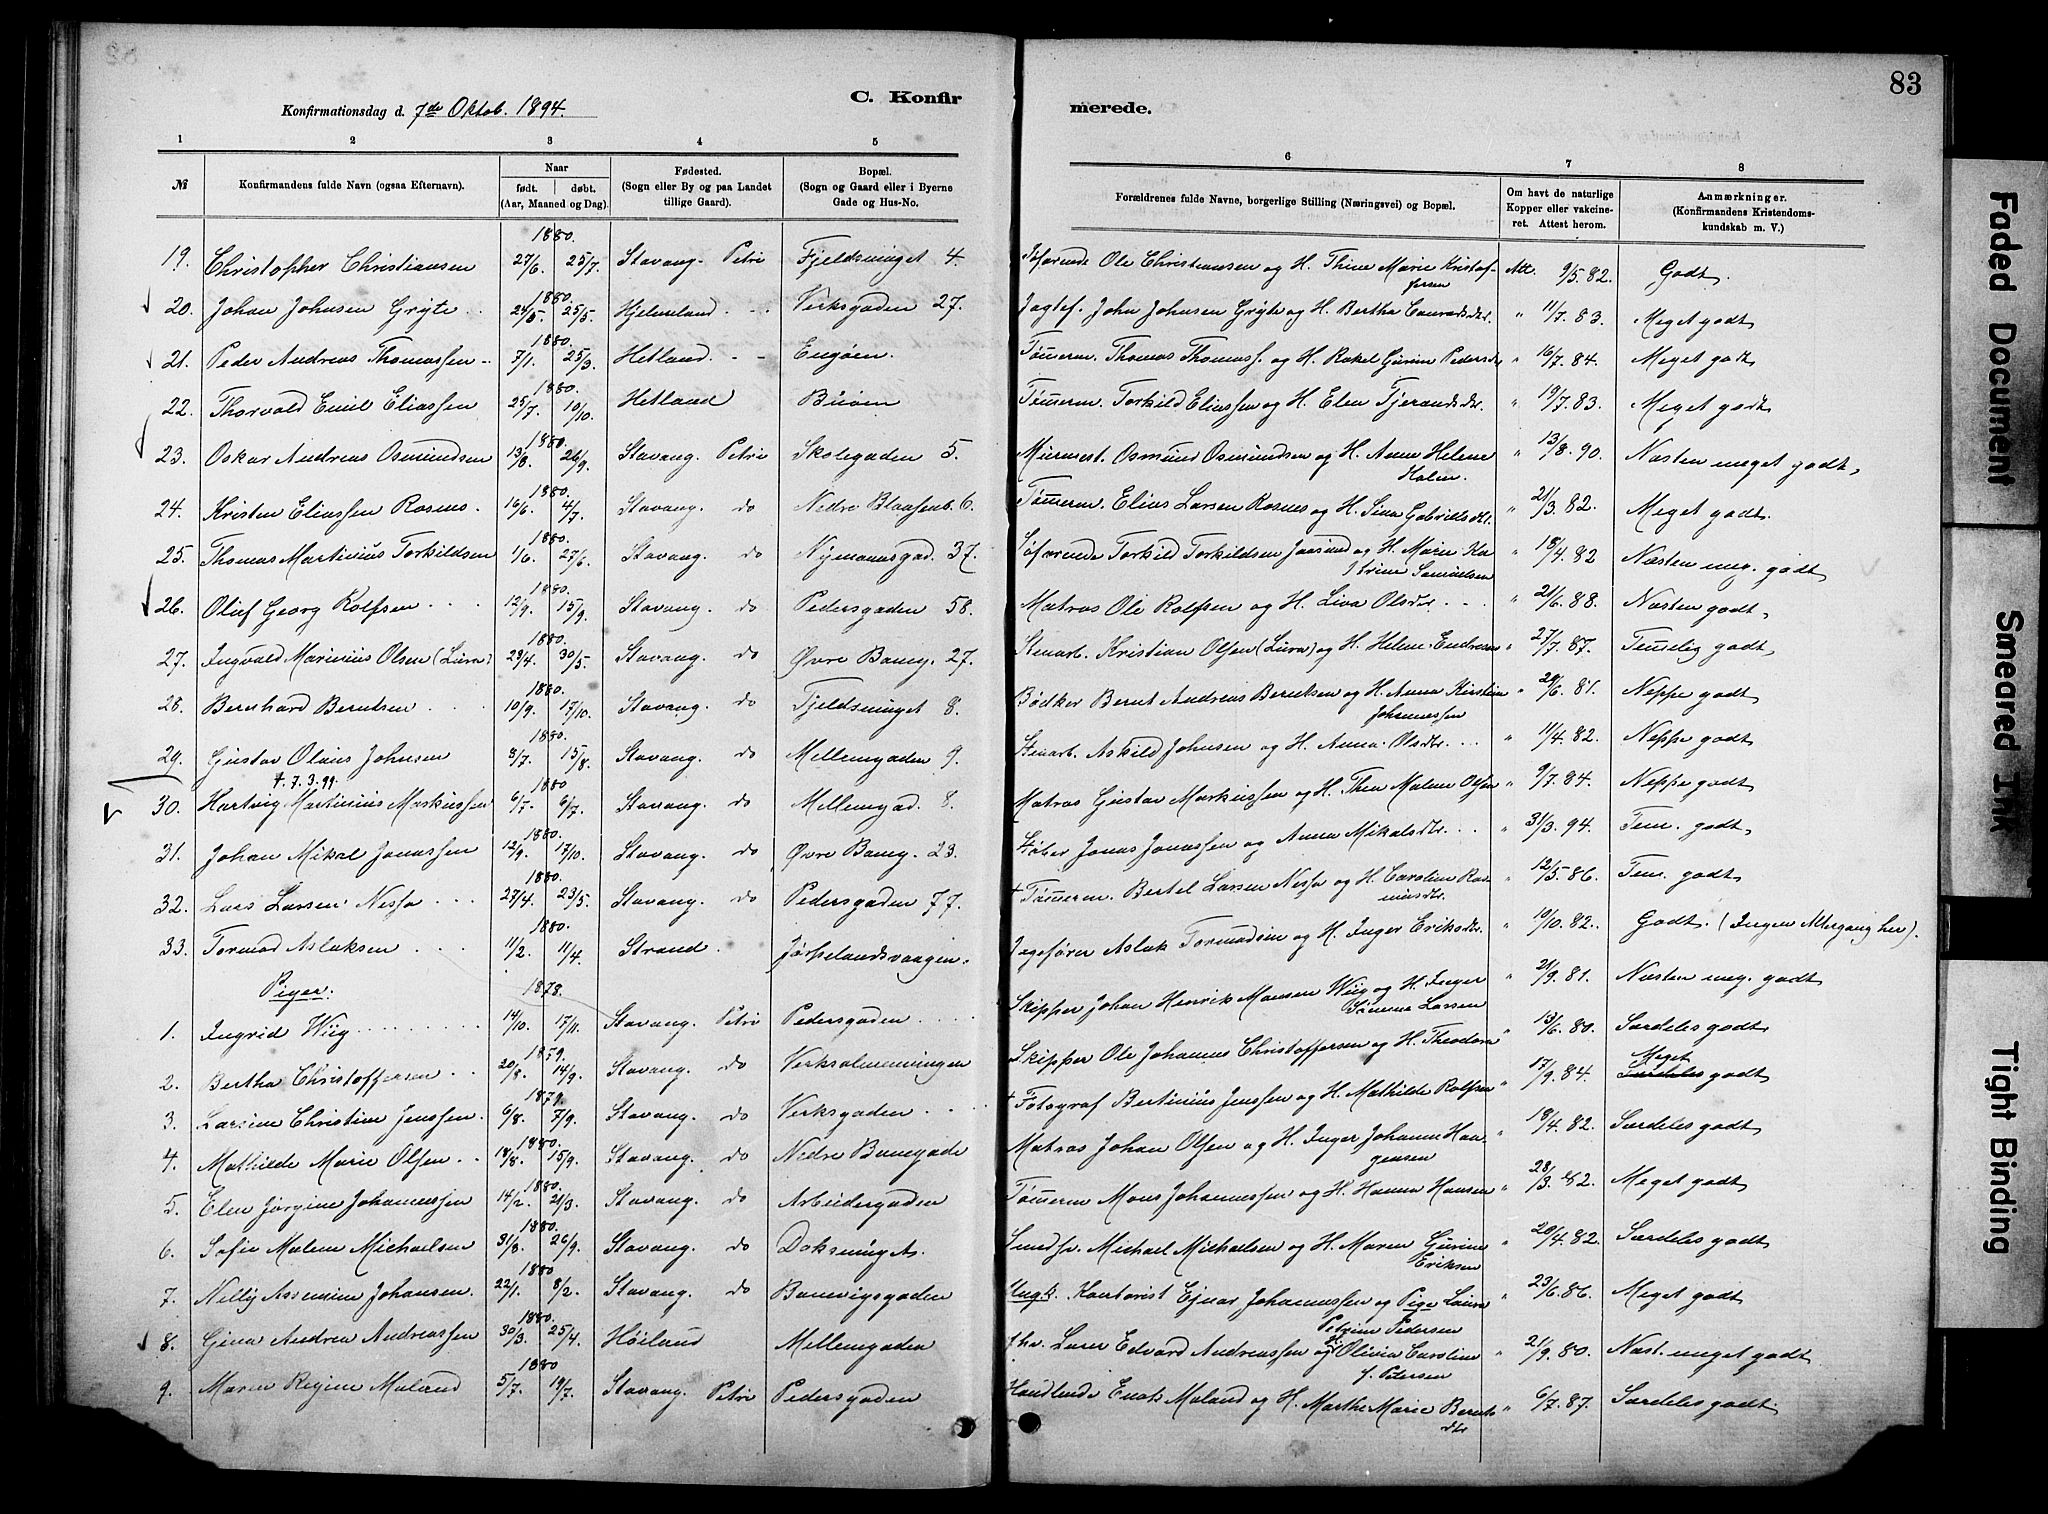 83
Konfirmationsdag d. 7de Oktob. 1894.
C. Konfirmerede.
1 2 3 4 5 6 7 8
№ Konfirmandens fulde Navn (ogsaa Efternavn). Naar født. døbt. (Aar, Maaned og Dag). Fødested. (Sogn eller By og paa Landet tillige Gaard). Bopæl. (Sogn og Gaard eller i Byerne Gade og Hus-No. Forældrenes fulde Navne, borgerlige Stilling (Næringsvei) og Bopæl. Om havt de naturlige Kopper eller vakcineret. Attest herom. Anmærkninger. (Konfirmandens Kristendomskundskab m. V.)
19. Christopher Christiansen 1880. 27/6. 25/7. Stavang. Petri Fjeldsminget 4. Søfarende Ole Christiansen og H. Thine Marie Kristoffersen Att. 9/5. 82. Godt.
20. Johan Johnsen Gryte 1880. 24/5. 25/5. Hjelmeland Verksgaden 27. Jagtef. John Johnsen Gryte og H. Bertha Conradsdtr. " 11/7. 83. Meget godt
21. Peder Andreas Thomassen 1880. 7/1. 25/3. Hetland. Engøen. Tømmerm. Thomas Thomass. og H. Rakel Gurine Pedersdtr " 16/7. 84. Meget godt
22. Thorvald Emil Eliassen 1880. 25/7. 10/10. Hetland Buøen Tømmerm. Torkild Eliassen og H. Elen Tjerandsdtr. " 19/7. 83. Meget godt
23. Oskar Andreas Osmundsen 1880. 13/8. 26/9. Stavang. Petri Skolegaden 5. Murmest. Osmund Osmundsen og H. Anna Helene Holm. " 13/8. 90. Næsten meget godt,
24. Kristen Eliassen Rosnes. 1880. 16/6. 4/7. Stavang. do Nedre Blaasenb. 6. Tømmerm. Elias Larsen Rosnes og H. Sina Gabrielsdtr. " 21/3. 82. Meget godt.
25. Thomas Martinius Torkildsen 1880. 1/6. 27/6. Stavang. do Nymannsgad. 37. Søfarende Torkild Torkildsen Jaasund og H. Maren Katrine Samuelsen " 18/4. 82 Næsten meg. godt
26. Oluf Georg Rolfsen 1880. 12/9. 15/9. Stavang. do Pedersgaden 58. Matros Ole Rolfsen og H. Liva Olsdtr " 21/6. 88. Næsten godt,
27. Ingvald Marinius Olsen (Lura) 1880. 29/4. 30/5. Stavang. do Øvre Baneg. 27. Stenarb. Kristian Olsen (Lura) og H. Helene Endresen " 27/7. 87. Temmelig godt,
28. Bernhard Berntsen 1880. 10/9. 17/10. Stavang. do Fjeldsminget 8. Bødker Bernt Andreas Berntsen og H. Anna Kirstine Johannessen " 29/6. 81. Neppe godt
29. Gustav Olaus Johnsen 1880. 3/7. 15/8. Stavang. do Mellemgaden 9. Stenarb. Askild Johnsen og H. Anna Olsdtr. " 11/4. 82. Neppe godt
† 7.3.99
30. Hartvig Martinius Markussen 1880 6/7. 6/7. Stavang. do Mellemgad. 8. Matros Gustav Markussen og H. Thea Malene Olsen " 9/7. 84. Neppe godt
31. Johan Mikal Jonassen 1880. 12/9. 17/10. Stavang. do Øvre Baneg. 23. Støber Jonas Jonassen og Anna Mikalsdtr. " 31/3. 94. Tem. godt,
32. Lars Larsen Nessa 1880. 27/4. 23/5. Stavang. do Pedersgaden 77. † Tømmerm. Bertel Larsen Nessa og H. Caroline Rasmusdtr. " 12/5. 86. Tem. godt
33. Tormod Aslaksen 1880. 11/2. 11/4. Strand. Jørpelandsvaagen. Jagefører Aslak Tormodsen og H. Inger Eriksdtr. " 10/10. 82. Godt. (Ingen Altergang her).
Piger.
1. Ingrid Wiig 1878. 14/10. 17/11. Stavang. Petri Pedersgaden Skipper Johan Henrik Monsen Wiig og H. Inger Larsen " 21/9. 81. Næsten meg. godt
2. Bertha Christoffersen 1879. 20/8. 14/9. Stavang. do Verksalmenningen Skipper Ole Johannes Christoffersen og H. Theodora " 13/6. 80. Særdeles godt
3. Larsine Christine Jenssen 1879. 6/8. 7/9. Stavang. do Verksgaden † Fotograf Bertinius Jenssen og H. Mathilde Rolfsen " 17/9. 84. Særdeles Meget godt
4. Mathilde Marie Olsen 1880. 18/8. 15/9. Stavang. do Nedre Banegade Matros Johan Olsen og H. Inger Johanne Haugensen " 18/4. 82. Særdeles godt
5. Elen Jørgine Johannessen 1880. 14/2. 21/3. Stavang. do Arbeidergaden Tømmerm Mons Johannessen og H. Hanna Hansen " 28/3. 82. Meget godt
6. Sofie Malene Michaelsen 1880. 31/8. 26/9. Stavang. do Doksmuget. Michael Michaelsen og H. Maren Gurine Eriksen " 20/4. 82. Særdeles godt
7. Nelly Asemine Johansen. 1880 22/1. 8/2. Stavang. do Banevigsgaden Ungk. Kontorist Ejnar Johannessen og Pige Laura Petrine Pedersen " 23/6. 86. Meget godt
8. Gina Andrea Andreassen 1880. 30/3. 25/4. Høiland Mellemgaden Edvard Andreassen og Olivia Caroline f. Petersen " 21/9. 80. Næst. meget godt
9. Maren Regine Maland 1880 5/7. 19/7. Stavang. Petri Pedersgaden Handlende Enok Maland og H. Marthe Marie Berentsdtr " 6/7. 87. Særdeles godt.
Faded Document
Smeared Ink
Tight Binding